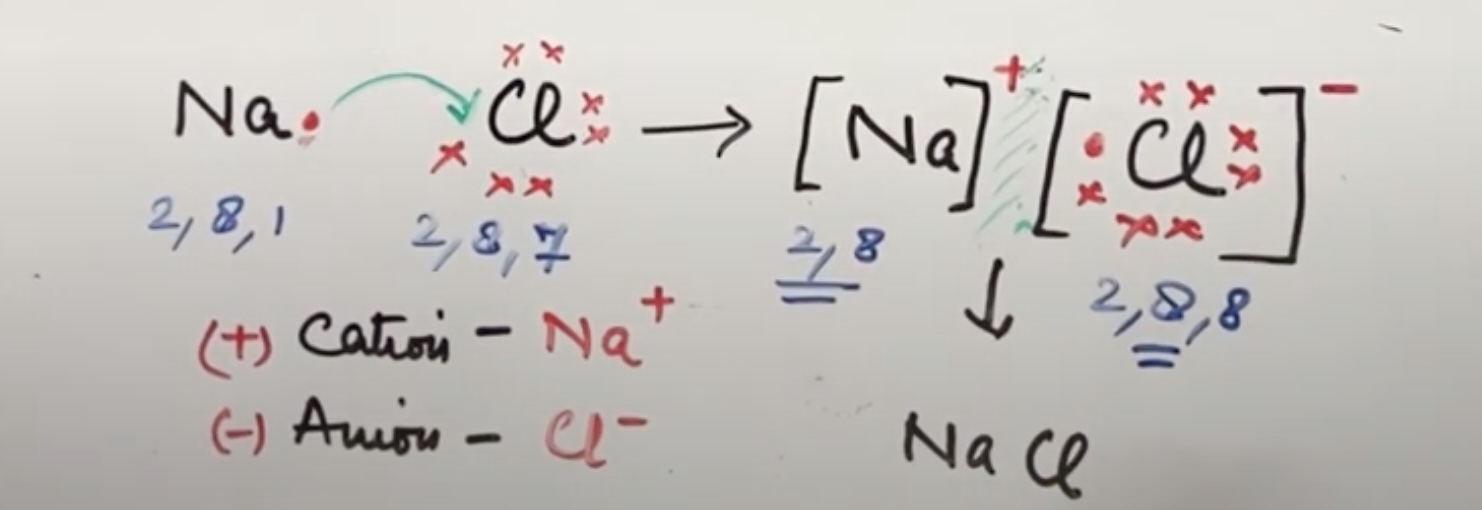 Na• Cl → [Na]⁺ [Cl]⁻
2, 8, 1 2, 8, 7 2, 8 2, 8, 8
(+) Cation – Na⁺ ↓
(-) Anion – Cl⁻ NaCl